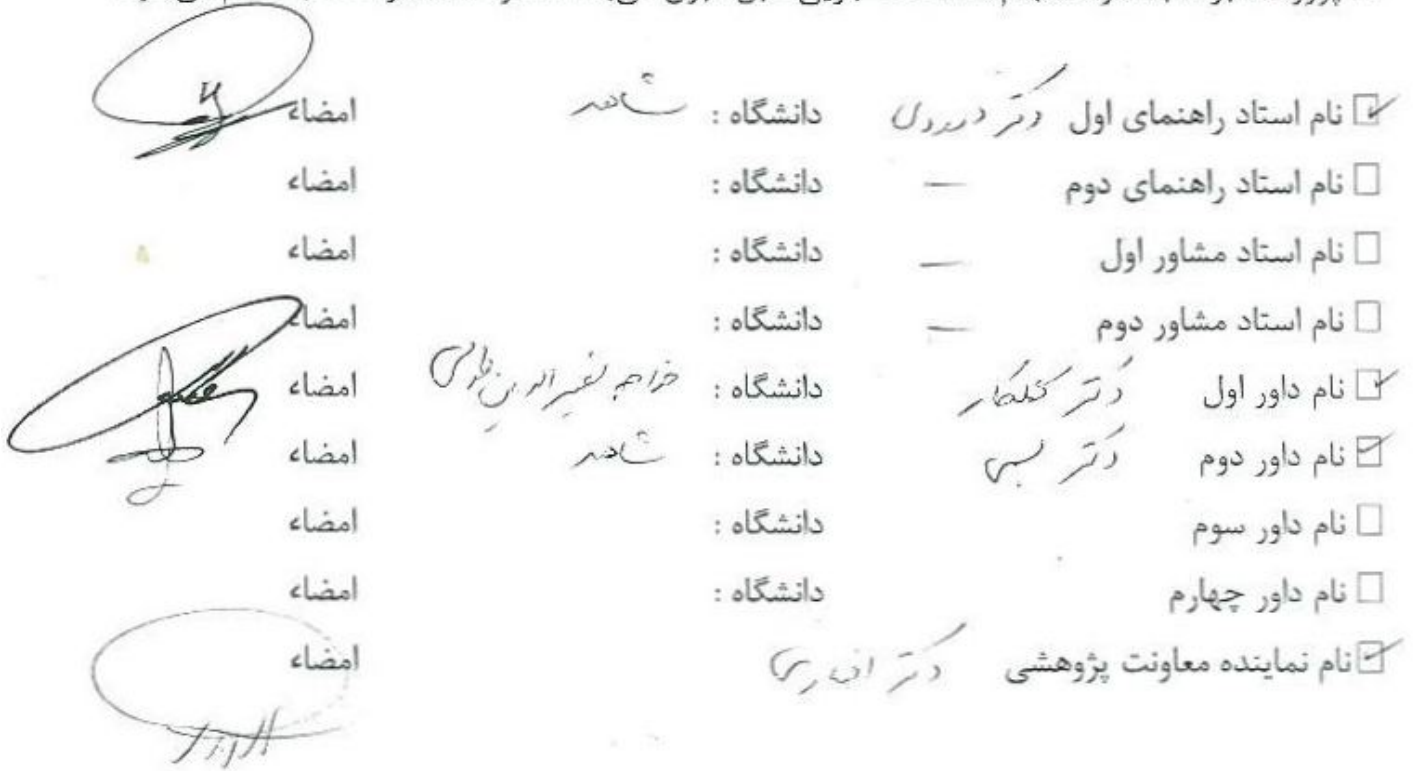 ☑ نام استاد راهنمای اول دکتر درودی دانشگاه : شاهد امضاء
☐ نام استاد راهنمای دوم — دانشگاه : امضاء
☐ نام استاد مشاور اول — دانشگاه : امضاء
☐ نام استاد مشاور دوم — دانشگاه : امضاء
☑ نام داور اول دکتر دانشگاه : خواجه نصیرالدین طوسی امضاء
☑ نام داور دوم دکتر دانشگاه : شاهد امضاء
☐ نام داور سوم دانشگاه : امضاء
☐ نام داور چهارم دانشگاه : امضاء
☑ نام نماینده معاونت پژوهشی دکتر امضاء